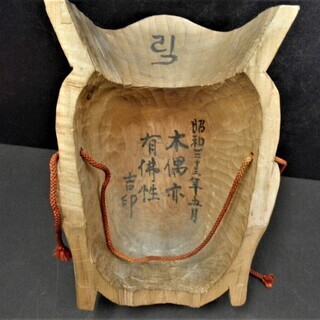 昭和三十三年五月
木偶亦
有佛性
吉印